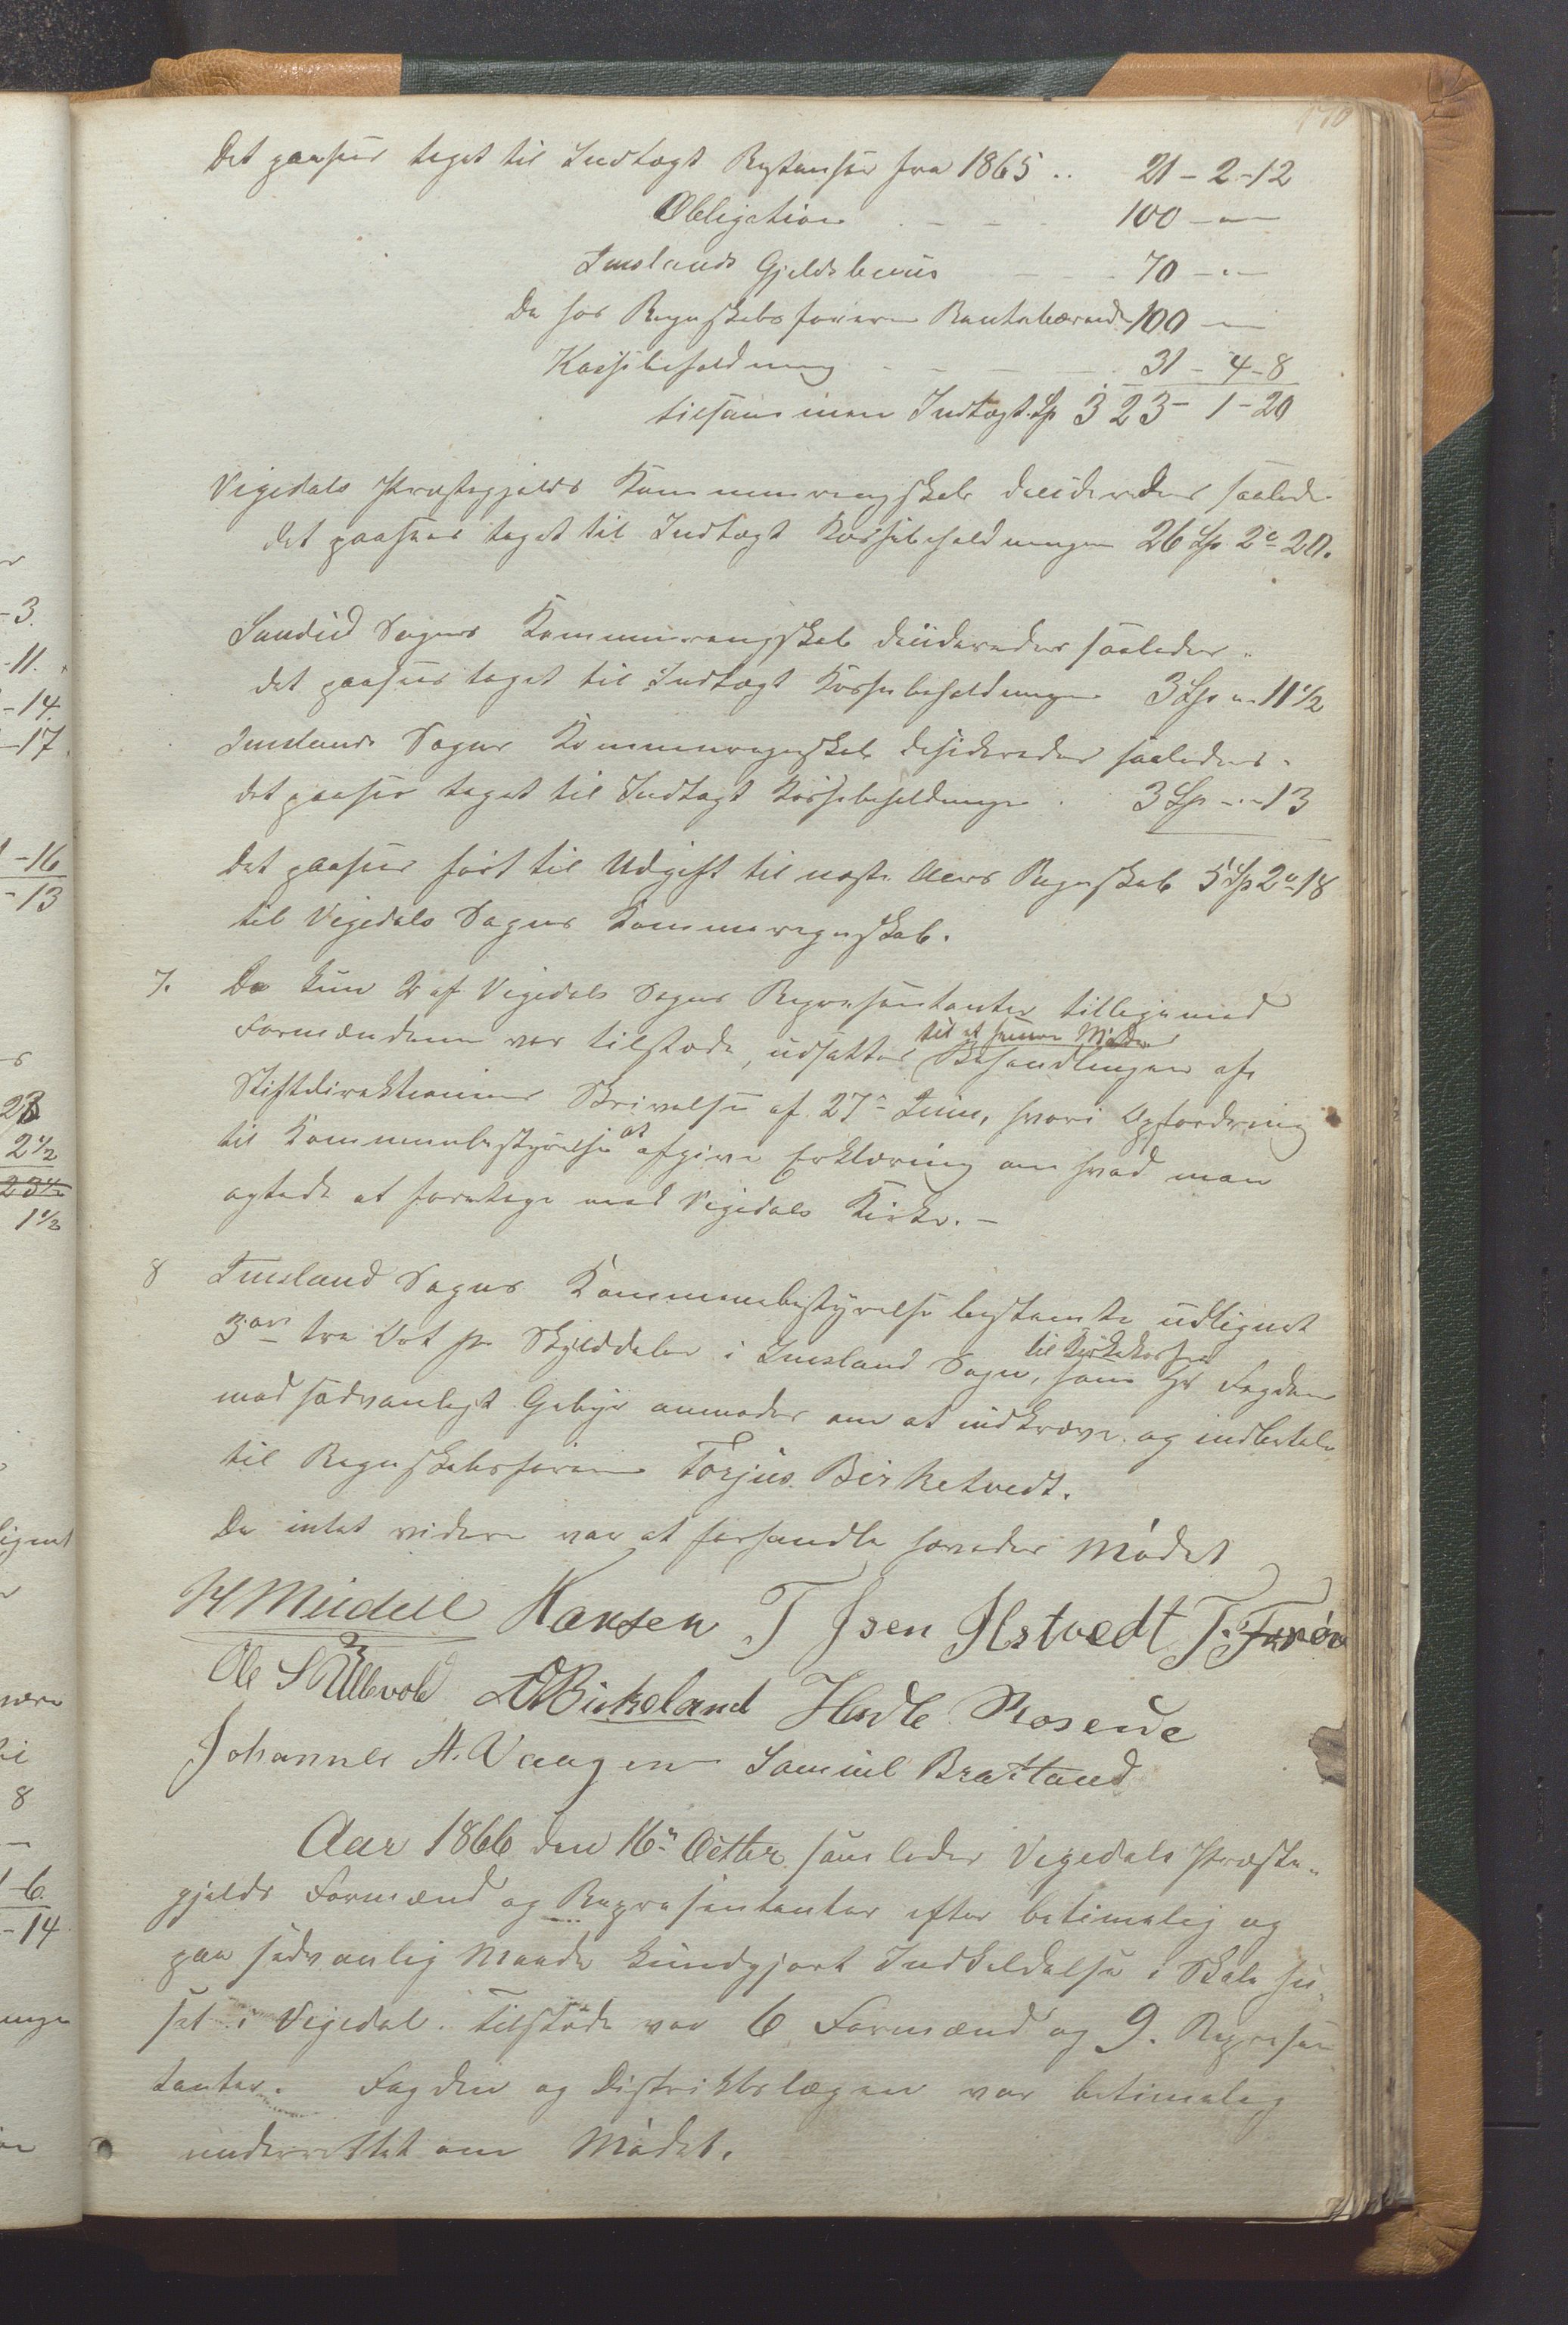 170
Det paasees taget til Indtægt Restanser fra 1865 .. 21 - 2 - 12
Obligation - - - 100 - " -
Imslands Gjeldsbeviis - - 70 - " -
De hos Regnskabsføreren Rentebærende 100 - " -
Kassebeholdning - - - - 31 - 4 - 8
tilsammen Indtægt Sp 323 - 1 - 20
Vigedals Præstegjelds Kommuneregnskab decideredes saaledes
det paasees taget til Indtægt Kassebeholdningen 26 Sp. 2 " 20.
Sandeid Sogns Kommuneregnskab decideredes saaledes.
det paasees taget til Indtægt Kassebeholdningen 3 Sp " 11 1/2
Imslands Sogns Kommuneregnskab desideredes saaledes.
det paasees taget til Indtægt Kassebeholdningen . 3 Sp - " - 13
det paasees ført til Udgift til næste Aars Regnskab 5 Sp 2 " 18
til Vigedals Sogns Kommuneregnskab.
7. Da kun 2 af Vigedals Sogns Repræsentanter tilligemed
Formændene var tilstæde, udsattes til et senere Møde Behandlingen af
Stiftdirektionens Skrivelse af 27de Juni, hvori Opfordring
til Kommunebestyrelsen at afgive Erklæring om hvad man
agtede at foretage med Vigedals Kirke. -
8 Imsland Sogns Kommunebestyrelse bestemte udlignet
3 tre Ort pr Skylddaler i Imsland Sogn, til Kirkekassen som Hr Fogden
mod sædvanligt Gebyr anmodes om at indkræve og indbetale
til Regnskabsføreren Torjus Birketvedt.
Da intet videre var at forhandle hævedes Mødet
H Meidell Hansen T Isen Ilstvedt T.
Ole S Ullevold Birkeland Hadle Rosende
Johannes A. Vaagen Samuel Bratland
Aar 1866 den 16n Octbr samledes Vigedals Præste-
gjelds Formænd og Repræsentanter efter betimelig og
paa sædvanlig Maade kundgjort Indkaldelse i Skolehu-
set i Vigedal. Tilstæde var 6 Formænd og 9. Repræsen
tanter. Fogden og Distriktslægen var betimelig
underrettet om Mødet.